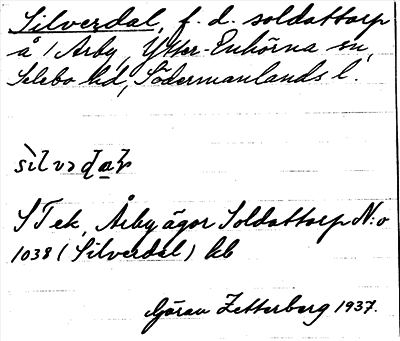 Silverdal, f. d. soldattorp
å 1 Årby, Ytter-Enhörna sn,
Selebo hd, Södermanlands l.
S Tek, Årby ägor Soldattorp N:o
1038 (Silverdal) kb
Göran Zetterberg 1937.